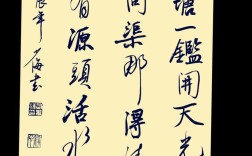 塘一鑑開天光
問渠那得
有源頭活水
辰年